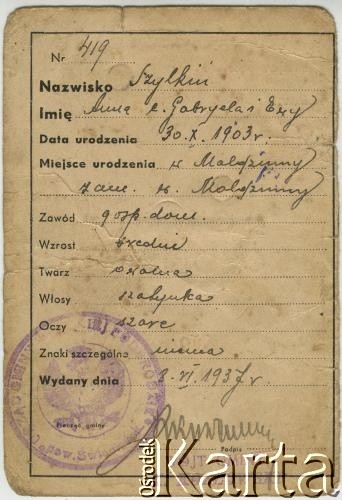 Nr 419
Nazwisko Szylkiń
Imię Anna c. Gabryela i Ewy
Data urodzenia 30.X.1903 r.
Miejsce urodzenia w
zam. w.
Zawód gosp. dom.
Wzrost średni
Twarz owalna
Włosy szatynka
Oczy szare
Znaki szczególne niema
Wydany dnia 8.VI.1937 r
Pieczęć gminy
Podpis
Ośrodek
Karta